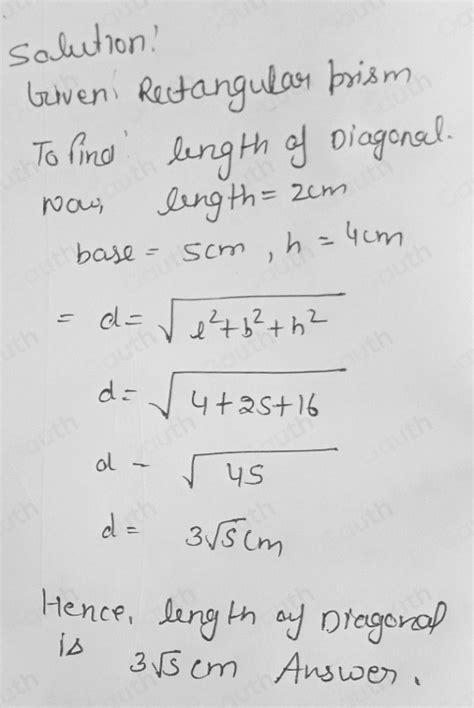 Solution!
Given: Rectangular prism
To find: length of Diagonal.
Now, length = 2cm
base = 5cm, h = 4cm
= d = √l²+b²+h²
d = √4+25+16
d - √45
d = 3√5 cm
Hence, length of Diagonal
is
3√5 cm Answer.